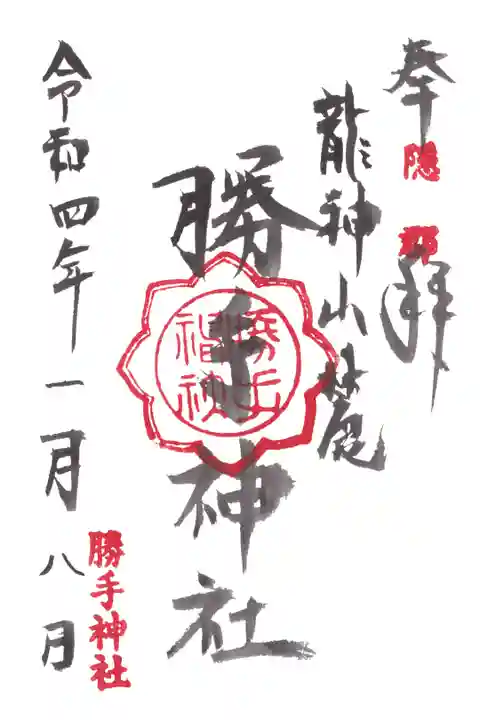 奉拝
隠
龍神山麓
勝手神社
勝手
神社
令和四年一月八月
勝手神社